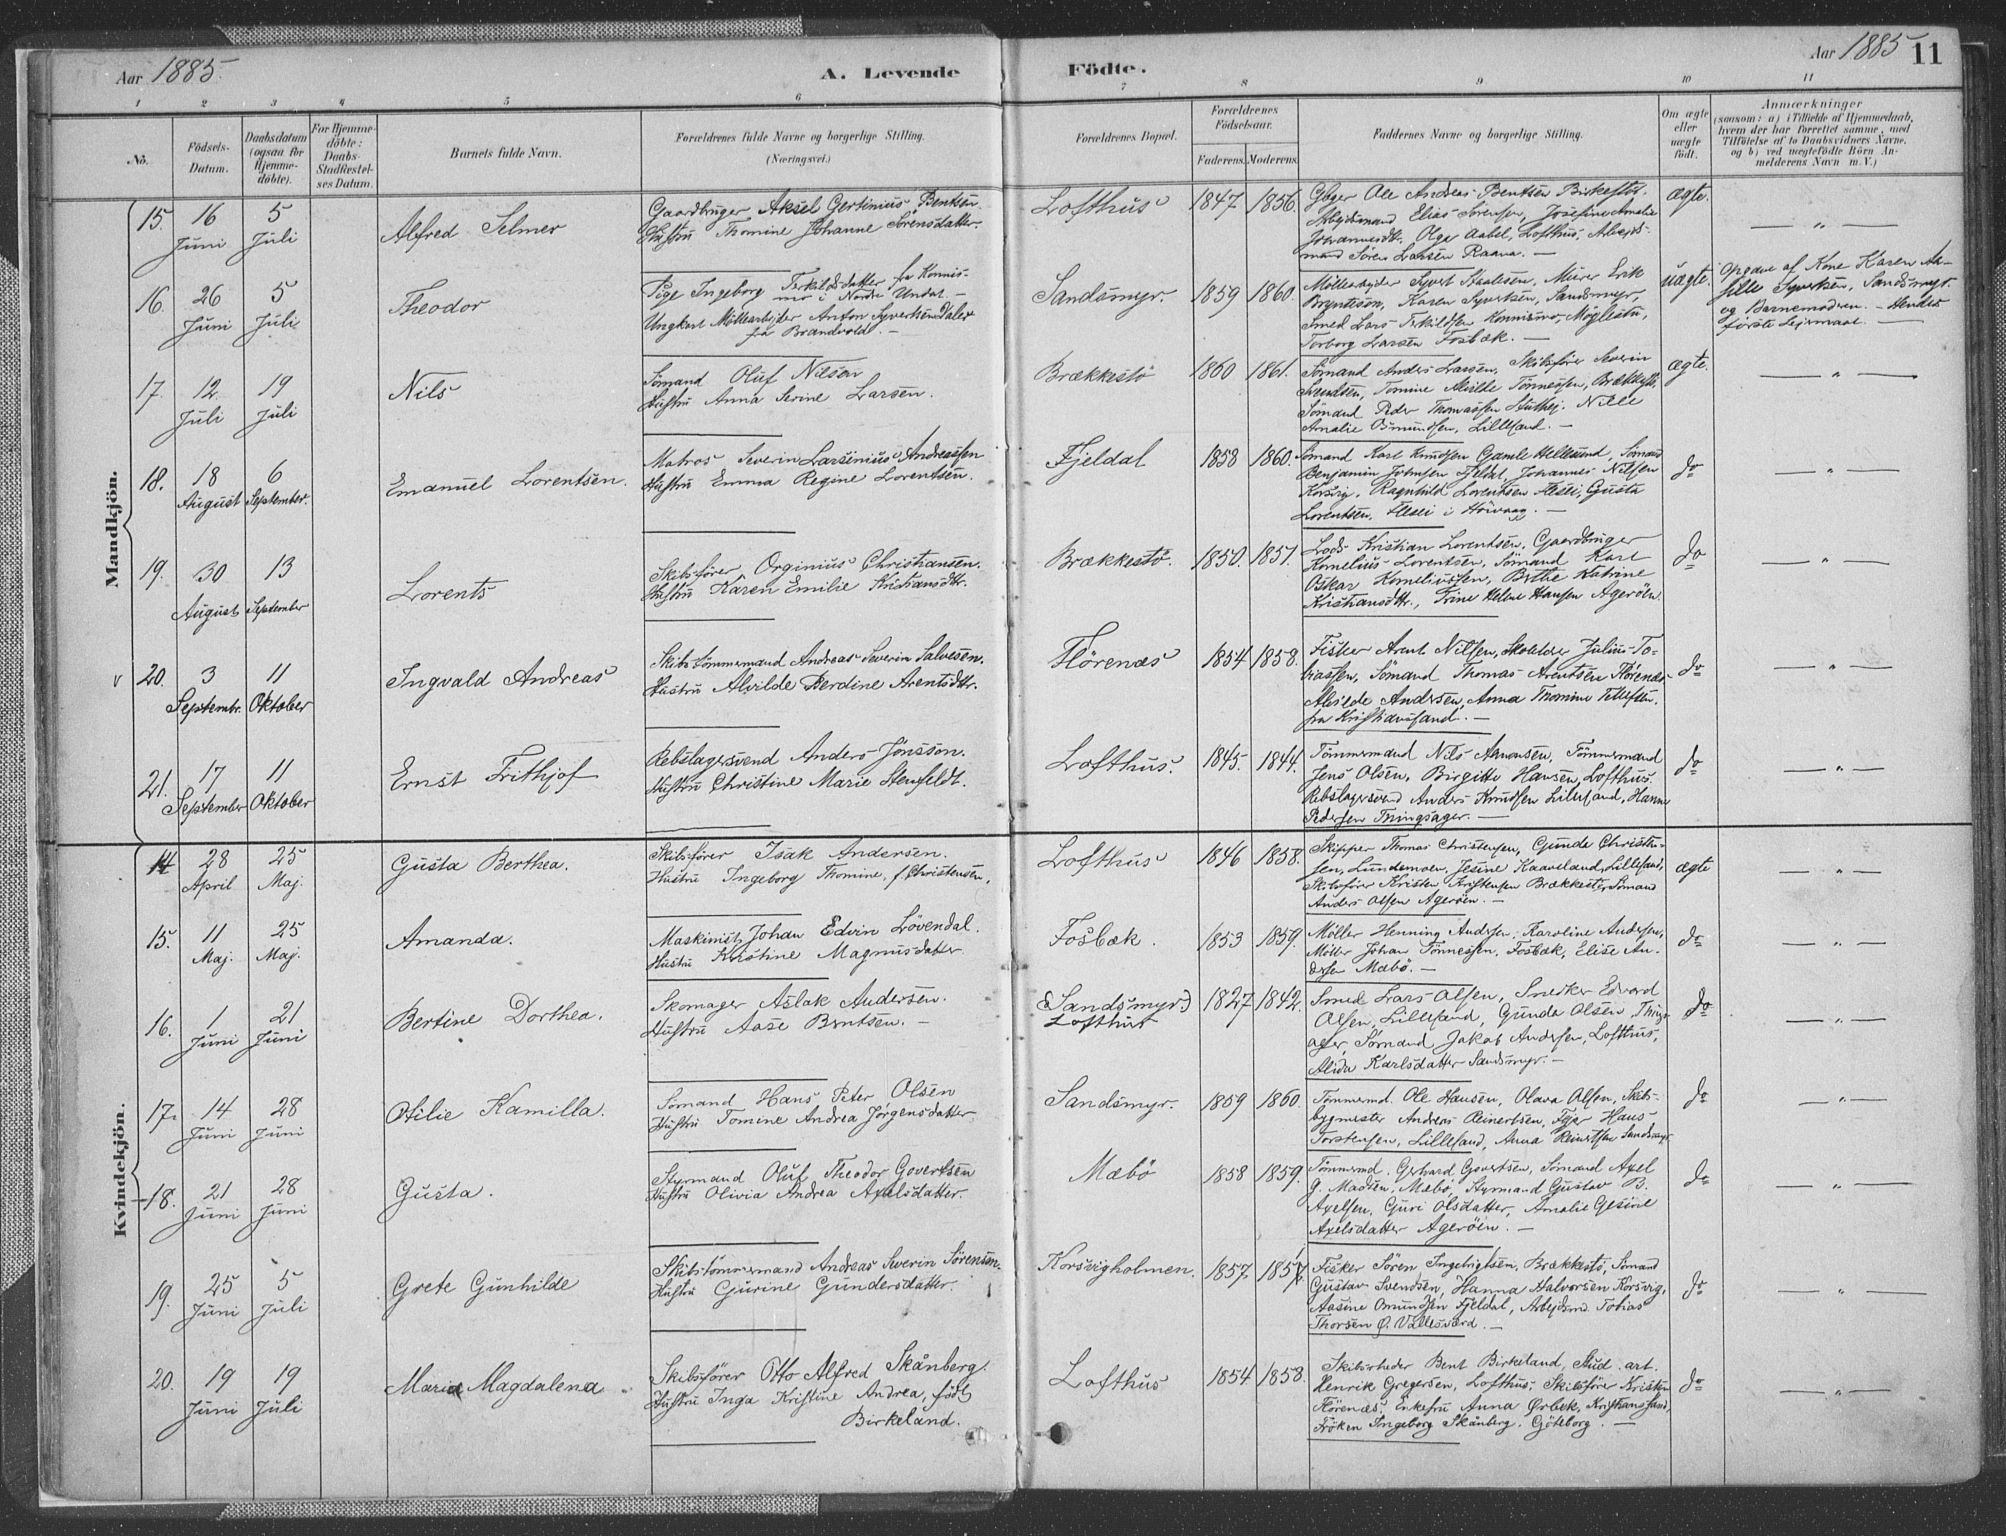 Aar 1885. A. Levende Födte. Aar 1885 11
1 2 3 4 5 6 7 8 9 10 11
No. Födsels-Datum. Daabsdatum (ogsaa for Hjemme-döbte). For Hjemme-döbte: Daabs-Stadfæstelses Datum. Barnets fulde Navn. Forældrenes fulde Navne og borgerlige Stilling. (Næringsvei.) Forældrenes Bopæl. Forældrenes Födselsaar. Faderens. Moderens. Faddernes Navne og borgerlige Stilling. Om ægte eller uægte födt. Anmærkninger (saasom: a) i Tilfælde af Hjemmedaab, hvem der har forrettet samme, med Tilföielse af to Daabsvidners Navne, og b) ved uægtefödte Börn Anmelderens Navn m. V.)
Mandkjön.
15. 16 Juni 5 Juli Alfred Selmer
Gaardbruger Aksel Gertinius Bentsen.
Hustru Thomine Johanne Sörensdatter.
Lofthus 1847 1856.
Gbger Ole Andreas Bentsen Birkestöl
Arbejdsmand Elias Sörensen, Josefine Amalie
Johannesdtr. Olga Aabel, Lofthus, Arbejds-
mand Sören Larsen Raana. —
ægte. — „ —
16. 26 Juni 5 Juli Theodor
Pige Ingeborg Terkildsdatter fra Konnis-
mo i Nordre Undal —
Ungkarl Möllearbejder Anton Syvertsen Dalen
fra Brandvold. —
Sandsmyr. 1859 1860.
Möllearbejder Syvert Staalesen, Murer Erik
Bryntesson, Karen Syvertsen, Sandsmyr,
Smed Lars Terkildsen Konnismo, Möglestu,
Torborg Larsen Fosbæk. —
uægte.
Opgave af Kone Karen
Syvertsen, Sandsmyr.
og Barnemodren. — Hendes
förste Lejermaal. —
17. 12 Juli 19 Juli Nils
Sömand Oluf Nilson
Hustru Anna Serine Larsen.
Brækkestö 1860 1861.
Sömand Anders Larsen, Skibsförer Severin
Svendsen, Tomine Alvilde Tönnessen, Brækkestö,
Sömand Peder Thomassen Nille
Amalie Osmundsen, Lillesand. —
ægte. — „ —
18. 18 August 6 September. Emanuel Lorentsen.
Matros Severin Larsinius Andreassen
Hustru Emma Regine Lorentsen.
Fjeldal 1858 1860.
Sömand Karl Knudsen Gamle Hellesund, Sömand
Benjamin Johnsen Fjeldal, Johannes Nilsen
Korsvig, Ragnhild Lorentsen Flesei, Gusta
Lorentsen, Flesei i Höivaag. —
do — „ —
19. 30 August 13 September Lorents
Skibsförer Orginius Christiansen.
Hustru Karen Emilie Kristiansdtr.
Brækkestö. 1850. 1857.
Lods Kristian Lorentsen, Gaardbruger
Kornelius Lorentsen, Sömand Karl
Oskar Korneliussen, Berthe Katrine
Kristiansdtr., Trine Helene Hansen Ageröen.
do — „ —
v 20. 3 Septembr. 11 Oktober Ingvald Andreas
Skibstömmermand Andreas Severin Salvesen.
Hustru Alvilde Berdine Arentsdtr.
Flörenæs 1854 1858.
Fisker Arent Nilsen, Skolelærer Julius To-
biassen, Sömand Thomas Arentsen Flörenæs
Alvilde Andersen, Anna Thomine Tellefsen,
fra Kristianssand. —
do — „ —
21. 17 September 11 Oktober Ernst Frithjof
Rebslagersvend Anders Jönsson.
Hustru Christine Marie Stenfeldt.
Lofthus. 1845. 1844.
Tömmermand Nils Amonsen, Tömmermand
Jens Olsen, Birgitte Hansen, Lofthus.
Rebslagersvend Anders Knudsen Lillesand, Hanne
Pedersen Tingsager. —
do — „ —
Kvindekjön.
14 28 April 25 Maj. Gusta Berthea.
Skibsförer Isak Andersen.
Hustru Ingeborg Thomine, f. Christensen,
Lofthus 1846 1858.
Skipper Thomas Christensen, Gunde Christen-
sen, Lundemoen, Jesine Kaaveland, Lillesand,
Skibsförer Kristen Kristensen Brækkestö, Sömand
Anders Olsen Ageröen. —
ægte — „ —
15. 11 Maj. 25 Maj. Amanda.
Maskinist Johan Edvin Lövendal.
Hustru Kristine Magnusdatter
Fosbæk. 1853 1859.
Möller Henning Andersen, Karoline Andersen,
Möller Johan Tönnessen, Fosbæk, Elise An-
dersen Mæbö. —
do — „ —
16. 1 Juni 21 Juni Bertine Dorthea.
Skomager Aslak Andersen.
Hustru Aase Berntsen. —
(Sandsmyr) Lofthus 1827 1842.
Smed Lars Olsen, Snedker Edvard
Olsen, Lillesand, Gunda Olsen Tings-
ager, Sömand Jakob Andersen, Lofthus,
Alida Karlsdatter Sandsmyr. —
do — „ —
17. 14 Juni 28 Juni Otilie Kamilla.
Sömand Hans Peter Olsen
Hustru Tomine Andrea Jörgensdatter
Sandsmyr. 1859 1860.
Tömmermd. Ole Hansen, Olava Olsen, Skibs-
bygmester Andreas Reinertsen, Hans
Torstensen, Lillesand, Anna Reinertsen Sandsmyr
do — „ —
18. 21 Juni 28 Juni Gusta.
Styrmand Oluf Theodor Govertsen
Hustru Olivia Andrea Axelsdatter.
Mæbö 1858 1859.
Tömmermd. Gerhard Govertsen, Sömand Axel
G. Madsen, Mæbö, Styrmand Gustav B.
Axelsen, Guri Olsdatter, Amalie Gesine
Axelsdatter Ageröen. —
do — „ —
19. 25 Juni 5 Juli Grete Gunhilde
Skibstömmermand Andreas Severin Sörensen.
Hustru Gjurine Gundersdatter.
Korsvigholmen. 1857 1857.
Fisker Sören Ingebrigtsen, Brækkestö, Sömand
Gustav Svendsen, Hanna Halvorsen Korsvig,
Aasine Omundsen Fjeldal, Arbejdsmd. Tobias
Thorsen Ö. Vallesværd. —
do — „ —
20. 19 Juni 19 Juli Maria Magdalena
Skibsförer Otto Alfred Skånberg.
Hustru Inga Kristine Andrea, född
Birkeland.
Lofthus 1854 1858.
Skibsrheder Bent Birkeland, Stud. art.
Henrik Gregersen, Lofthus, Skibsförer Kristen
Flörenæs, Enkefru Anna Örbek, Kristianssand,
Fröken Ingeborg Skånberg. Göteborg. —
do — „ —